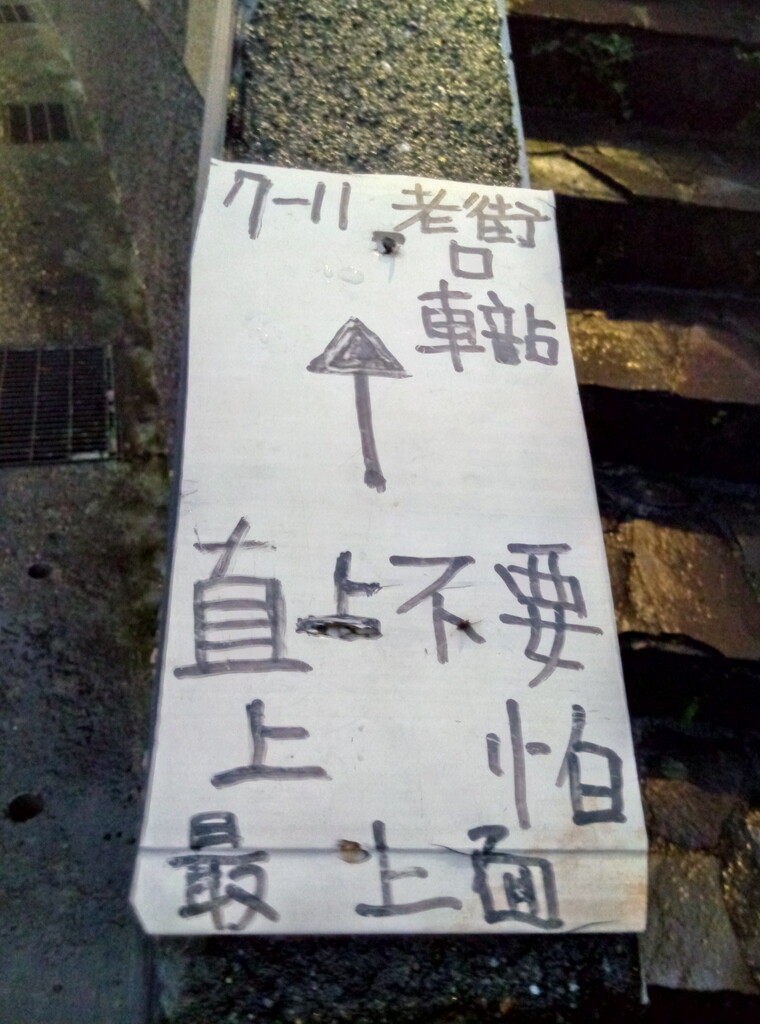 7-11 老街
口
車站
直上不要
上 怕
最上面